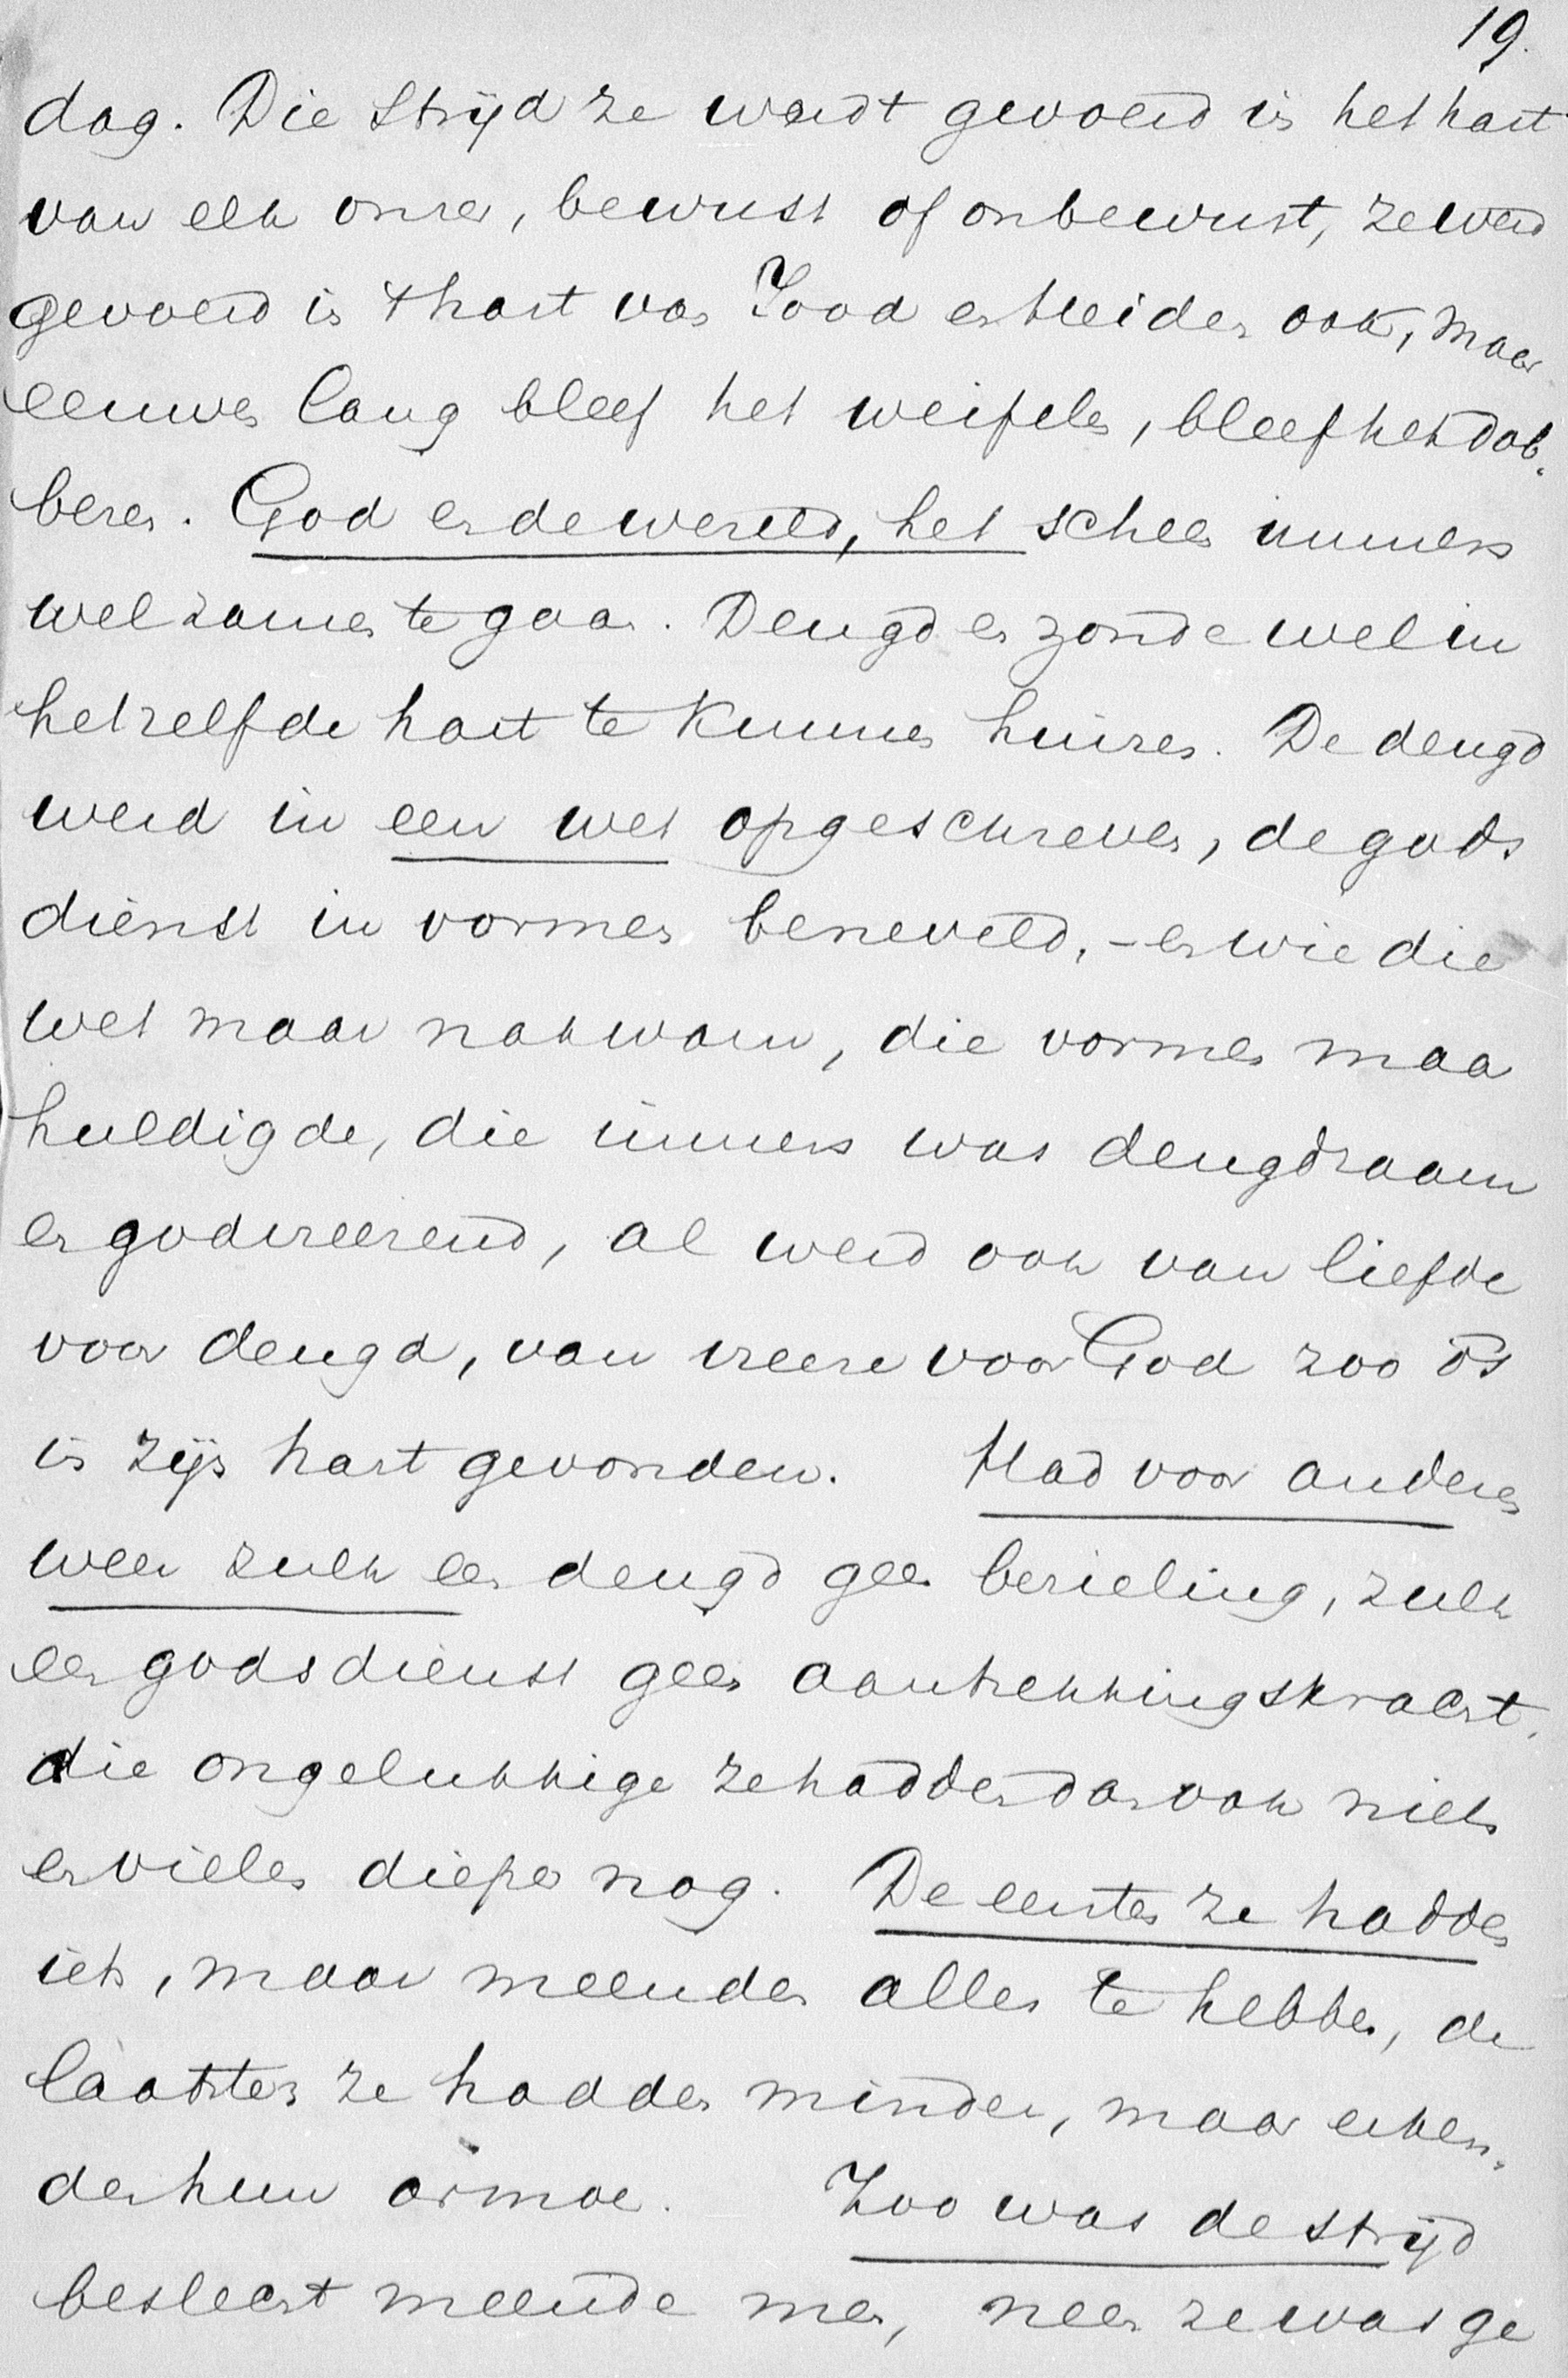 19.
dag. Die strijd ze wordt gevoerd in het hart
van elk onzer, bewust of onbewust, ze werd
gevoerd in 't hart van Jood en Heiden ook, maar
eeuwen lang bleef het weifelen, bleef het dob-
beren. God en de wereld, het scheen immers
wel zamen te gaan. Deugd en zonde wel in
hetzelfde hart te kunnen huizen. De deugd
werd in een wet opgeschreven, de gods
dienst in vormen beneveld, - en wie die
wet maar nakwam, die vormen maar
huldigde, die immers was deugdzaam
en godvreezend, al werd ook van liefde
voor deugd, van vreeze voor God zoo
in zijn hart gevonden. Had voor anderen
weer zulk een deugd geen bezieling, zulk
een godsdienst geen aantrekkingskracht,
die ongelukkige ze hadden dan ook niets
en vielen dieper nog. De eersten ze hadden
iets, maar meenden alles te hebben, de
laatsten ze hadden minder, maar erken-
den hun armoe. Zoo was de strijd
beslecht meende men, neen ze was ge